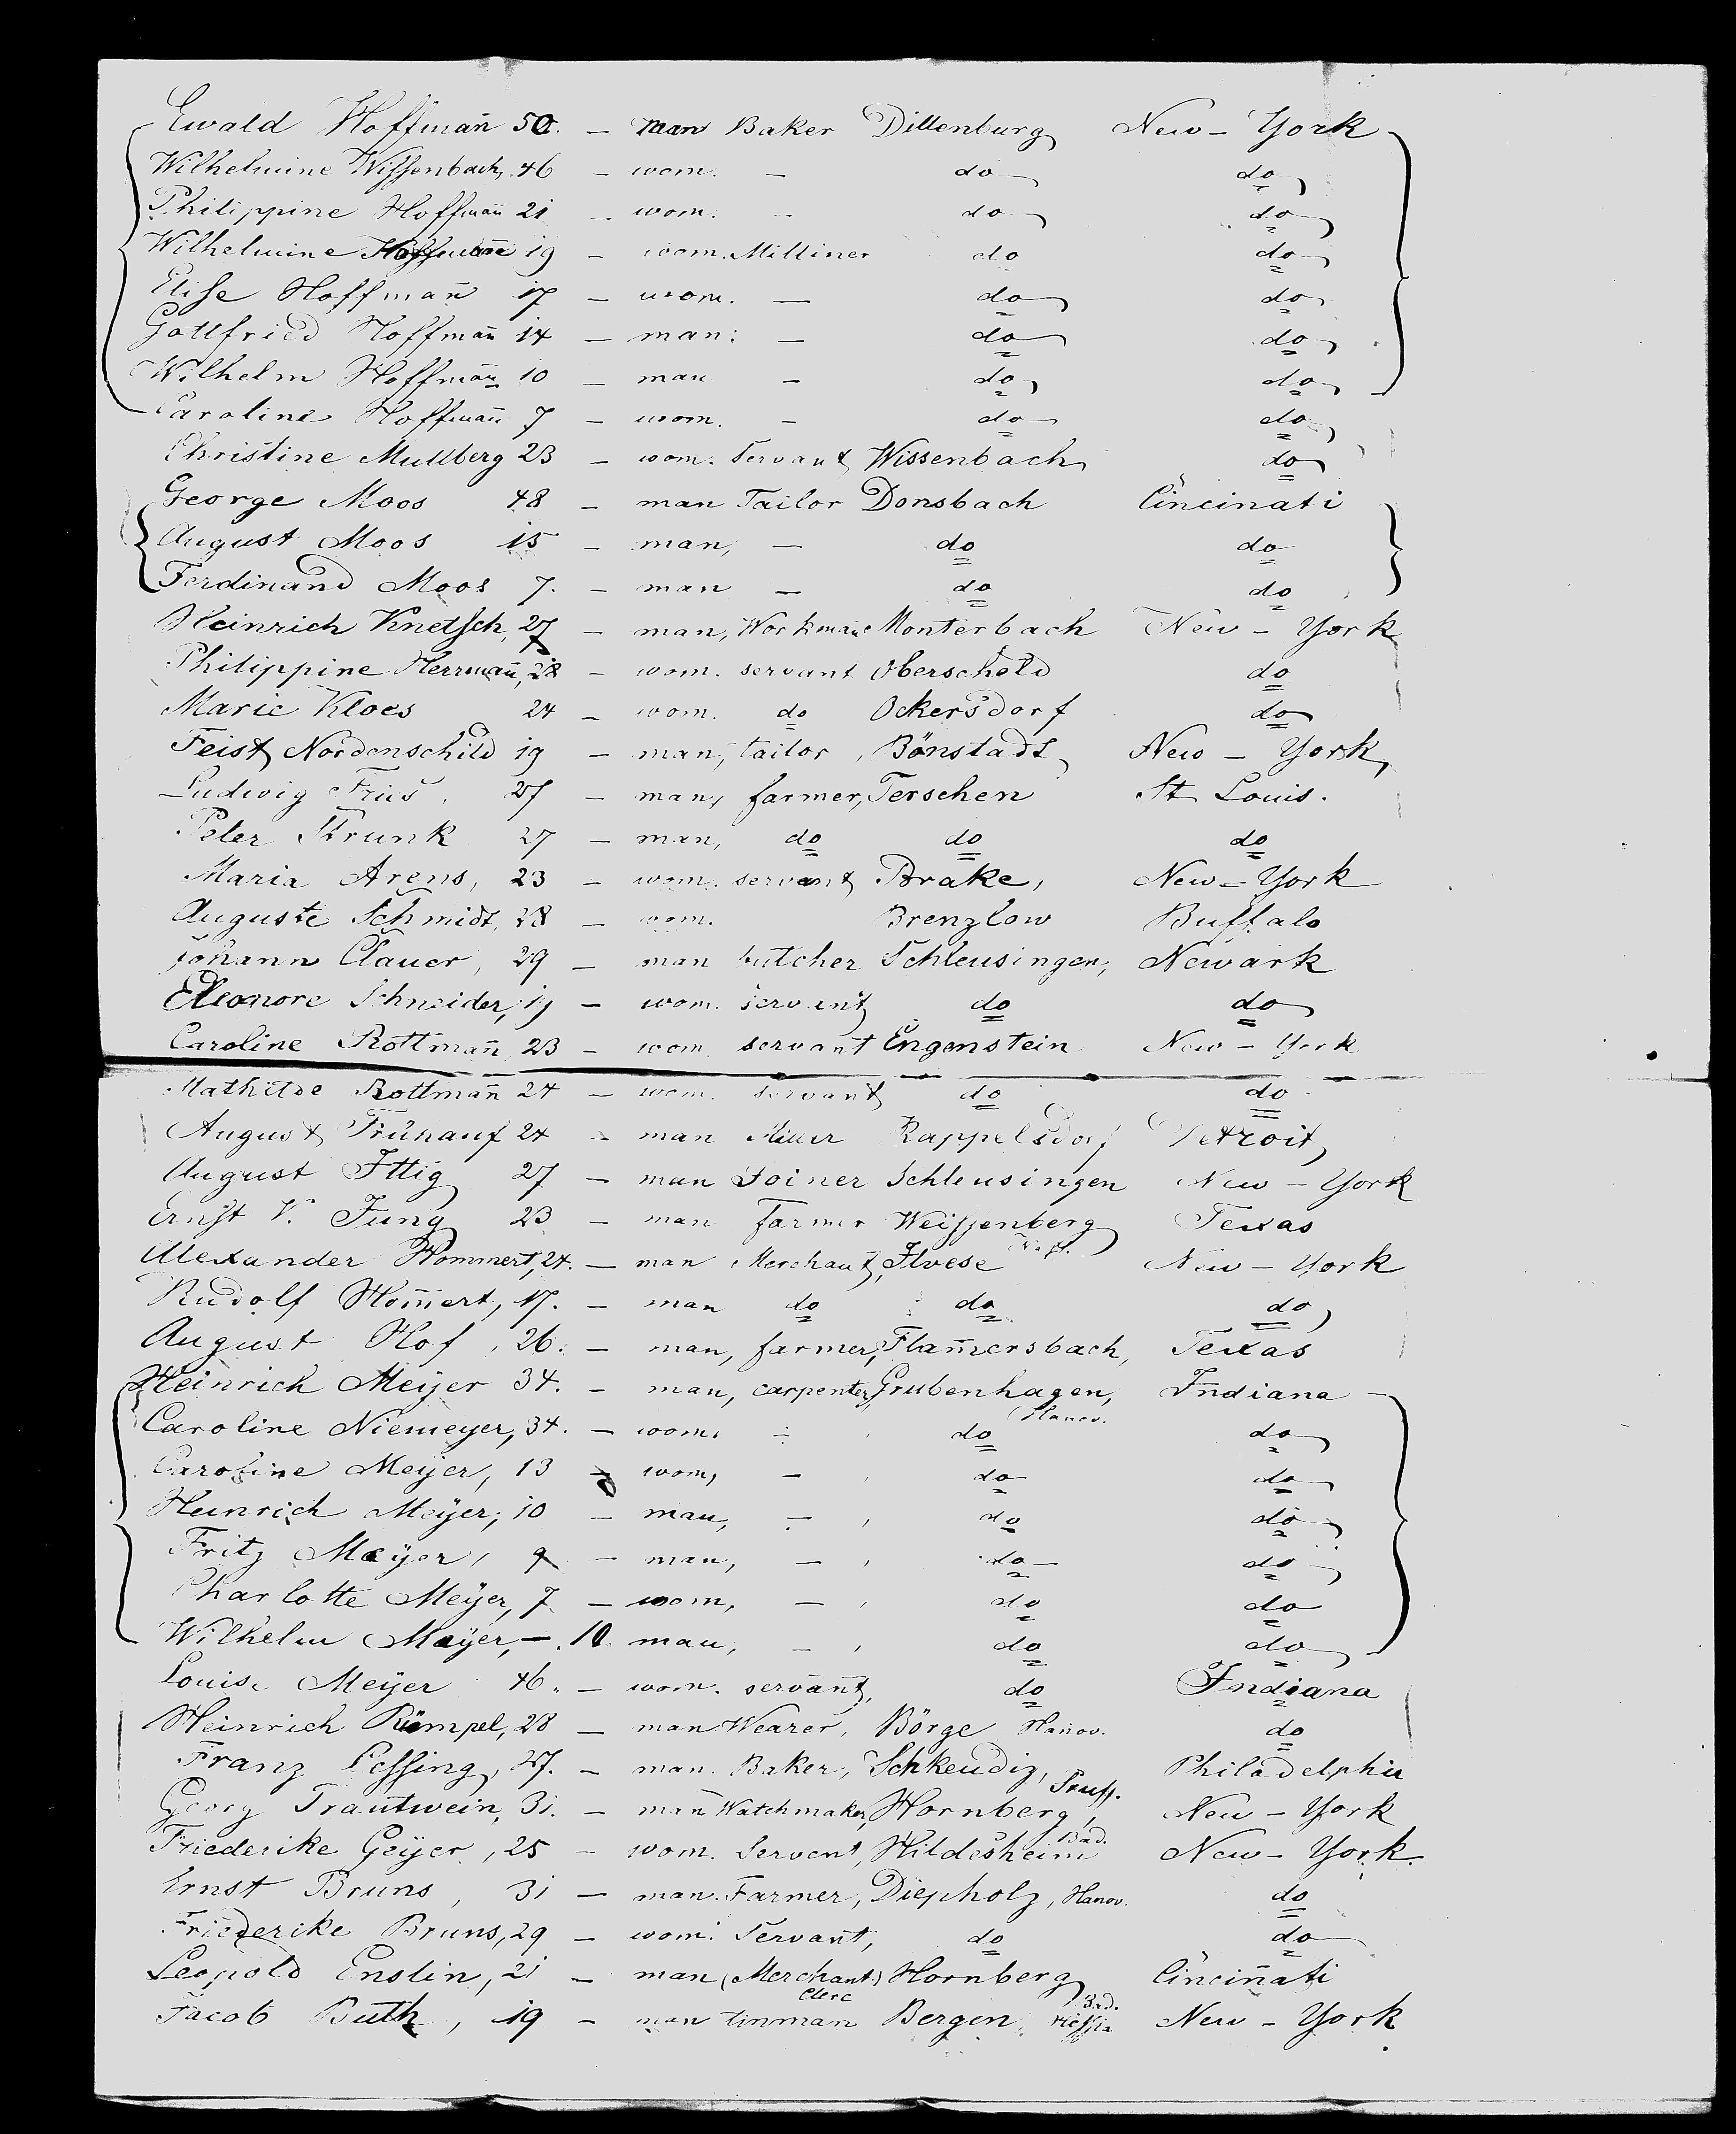 Ewald Hoffmañ 50. — man Baker Dillenburg New-York
Wilhelmine Wissenbach, 46 — wom. — do do
Philippine Hoffmañ 21 — wom. — do do
Wilhelmine Hoffmañ 19 — wom. Milliner do do
Elise Hoffmañ 17 — wom. — do do
Gottfried Hoffmañ 14 — man. — do do
Wilhelm Hoffmañ 10 — man — do do
Caroline Hoffmañ 7 — wom. — do do
Christine Mullberg 23 — wom. Servant Wissenbach do
George Moos 48 — man Tailor Donsbach Cincinati
August Moos 15 — man, — do do
Ferdinand Moos 7. — man — do do
Heinrich Knetsch, 27 — man, Workman Monterbach New-York
Philippine Herrmañ, 28 — wom. servant Oberscheld do
Marie Kloes 24 — wom. do Ockersdorf do
Feist Nordenschild 19 — man, tailor, Bönstadt New-York
Ludwig Fries 27 — man, farmer, Terschen St Louis.
Peter Strunk 27 — man, do do do
Maria Arens, 23 — wom. servant Brake, New-York
Auguste Schmidt, 28 — wom. Brenzlow Buffalo
Johann Clauer, 29 — man butcher Schleusingen, Newark
Eleonore Schneider, 19 — wom. servant do do
Caroline Rottmañ 23 — wom. servant Engenstein New-York
Mathilde Rottmañ 24 — wom. servant do do
August Frühauf 24 — man Miller Rappelsdorf Detroit
August Ittig 27 — man Joiner Schleusingen New-York
Ernst V. Jung 23 — man farmer Weissenberg Texas
Alexander Hommert, 24. — man Merchant, Ilvese New-York
Rudolf Hom̃ert, 17. — man do do do
August Hof, 26. — man, farmer, Flam̃ersbach, Texas
Heinrich Meijer 34. — man, carpenter, Grubenhagen, Hanov. Indiana
Caroline Niemeyer, 34. — wom. — do do
Caroline Meijer, 13 — wom, — do do
Heinrich Meijer, 10 — man, — do do
Fritz Meijer, 9 — man, — do do
Charlotte Meijer, 7 — wom, — do do
Wilhelm Meijer, —. 10 man, — do do
Louise Meijer 46. — wom. servant, do Indiana
Heinrich Rümpel, 28 — man Wearer, Börge Hanov. do
Franz Lessing, 27. — man. Baker, Schkeudig, Pruss. Philadelphia
Georg Trautwein, 31. — man Watchmaker, Hornberg, Bad. New-York
Friederike Geijer, 25 — wom. Servent, Hildesheim New-York.
Ernst Bruns, 31 — man. Farmer, Diepholz, Hanov. do
Friederike Bruns, 29 — wom. Servant, do do
Leopold Enslin, 21 — man (Merchant) Clerc Hornberg Bad. Cinciñati
Jacob Buth, 19 — man tinman Bergen, New-York